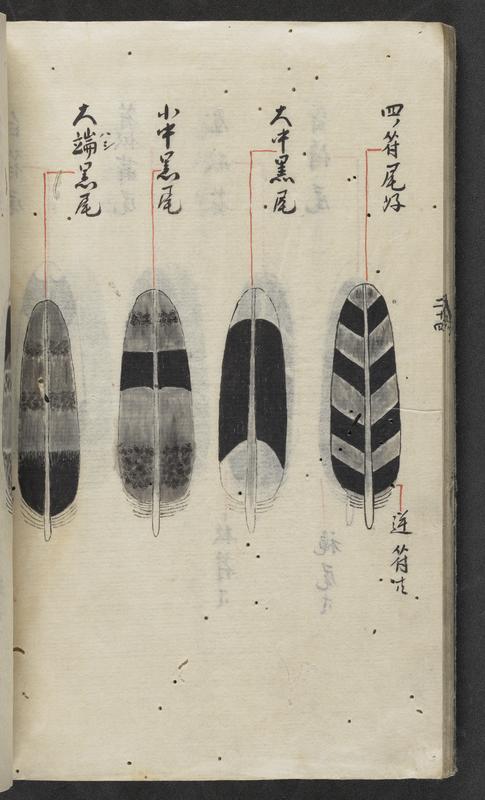 四ノ符尾好
逆符吹
大中黒尾
小中黒尾
大端黒尾
ハシ
二十四